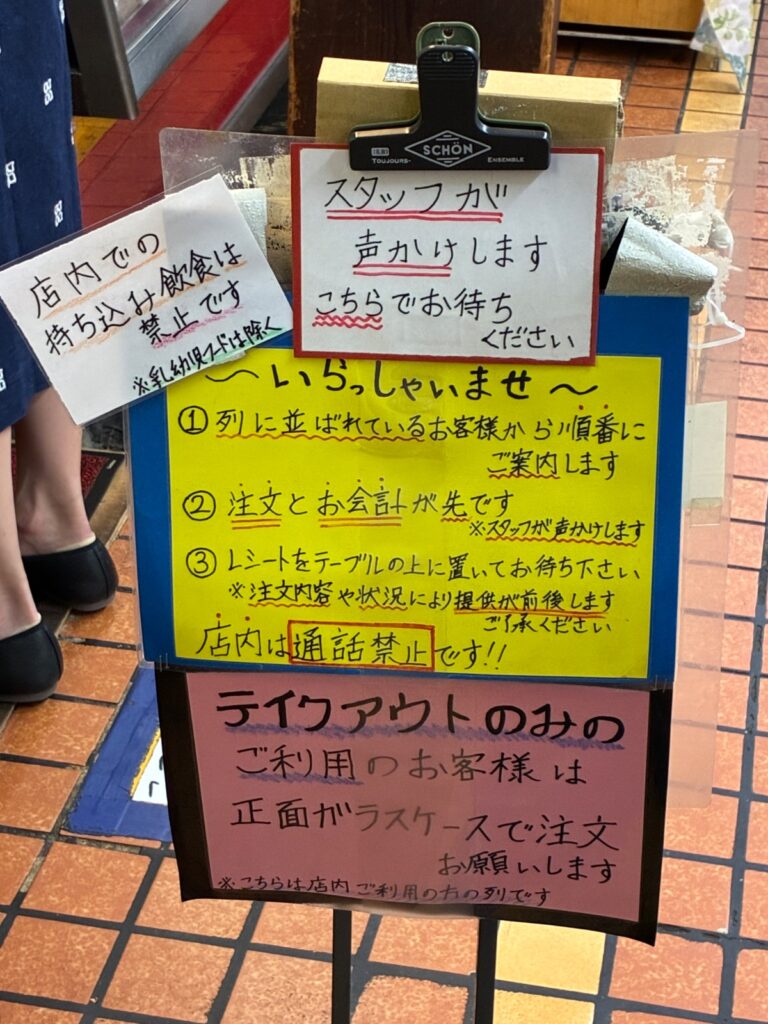 SCHÖN
TOUJOURS- ENSEMBLE
スタッフが
声かけします
こちらでお待ち
ください
店内での
持ち込み飲食は
禁止です
※乳幼児フードは除く
～いらっしゃいませ～
① 列に並ばれているお客様から順番に
ご案内します
② 注文とお会計が先です
※スタッフが声かけします
③ レシートをテーブルの上に置いてお待ち下さい
※注文内容や状況により提供が前後します
ご了承ください
店内は通話禁止です!!
テイクアウトのみの
ご利用のお客様は
正面ガラスケースで注文
お願いします
※こちらは店内ご利用の方の列です